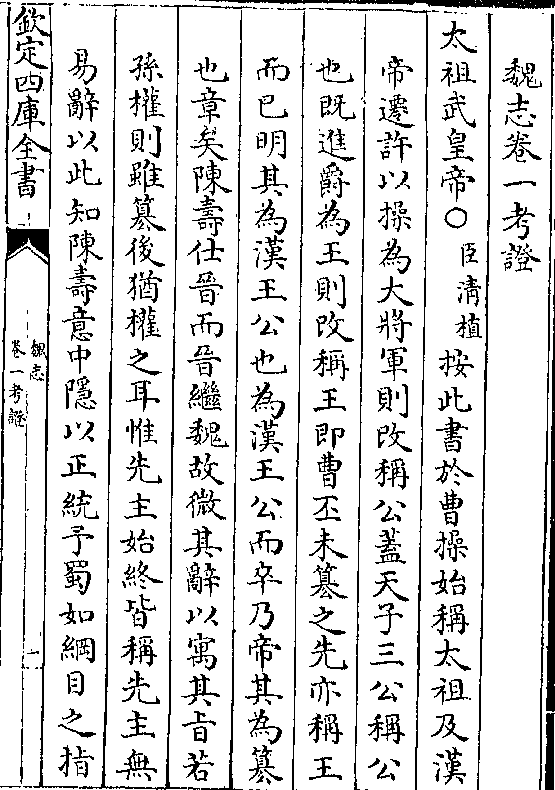 魏志卷一考證
太祖武皇帝○臣清植按此書於曹操始稱太祖及漢
帝遷許以操為大將軍則改稱公蓋天子三公稱公
也既進爵為王則改稱王即曹丕未篡之先亦稱王
而已明其為漢王公也為漢王公而卒乃帝其為篡
也章矣陳壽仕晉而晉繼魏故微其辭以寓其旨若
孫權則雖篡後猶權之耳惟先主始終皆稱先主無
易辭以此知陳壽意中隱以正統予蜀如綱目之指
欽定四庫全書
魏志
卷一考證
一